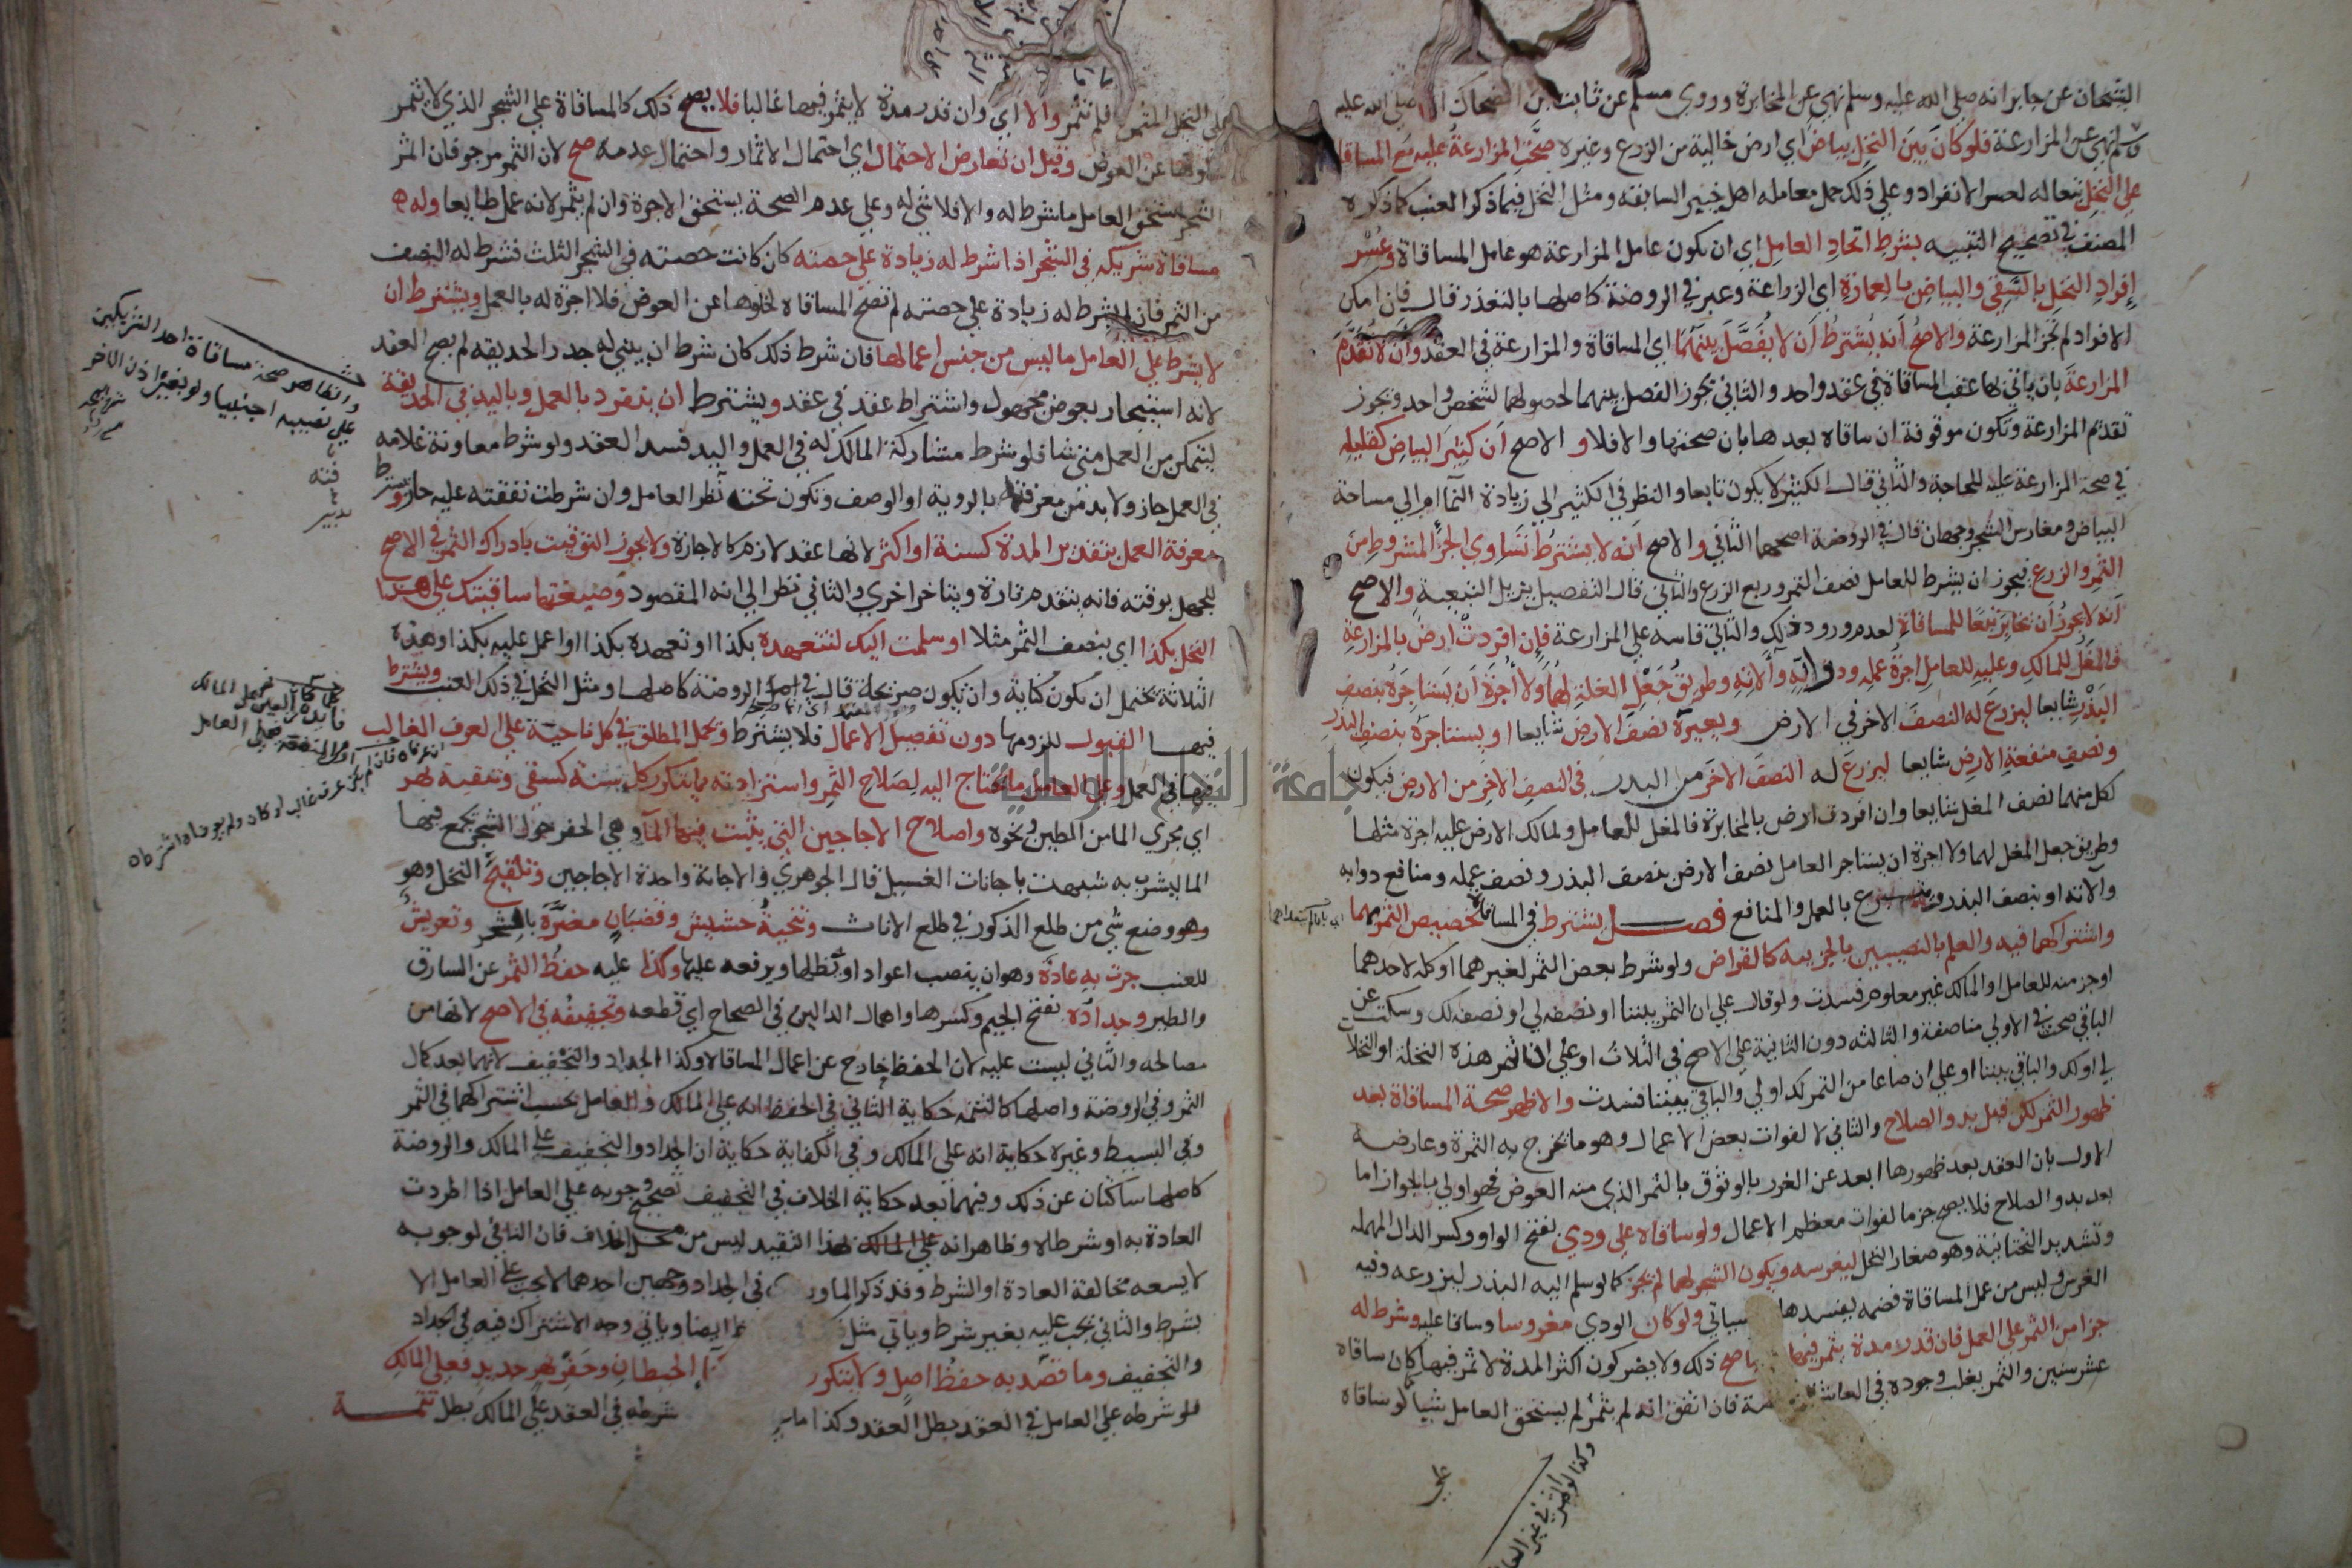 الشيخان عن جابر انه صلي الله عليه وسلم نهي عن المخابرة وروي مسلم عن ثابت بن الضحاك انه صلي الله عليه
وسلم نهي عن المزارعة فلو كان بين النخل بياض اي ارض خالية من الزرع وغيره صحت المزارعة عليه مع المساقاة
علي النخل تبعا له لعسر الانفراد وعلي ذلك حمل معاملة اهل خيبر السابقة ومثل النخل فيما ذكر العنب كما ذكره
المصنف في تصحيح التنبيه بشرط اتحاد العامل اي ان يكون عامل المزارعة هو عامل المساقاة وعسر
إفراد النخل بالسقي والبياض بالعمارة اي الزراعة وعبر في الروضة كاصلها بالتعذر قال فان امكن
الافراد لم تجز المزارعة والاصح أنه يشترط أن لا يفصل بينهما اي المساقاة والمزارعة في العقد وان لا تقدم
المزارعة بان ياتي بها عقب المساقاة في عقد واحد والثاني يجوز الفصل بينهما لحصولهما لشخص واحد ويجوز
تقديم المزارعة وتكون موقوفة ان ساقاه بعدها بان صحتها والا فلا والاصح أن كثير البياض كقليله
في صحة المزارعة عليه للحاجة والثاني قال الكثير لا يكون تابعا والنظر في الكثير الي زيادة النما او الي مساحة
البياض ومغارس الشجر وجهان قال في الروضة اصحهما الثاني والاصح انه لا يشترط تساوي الجزء المشروط من
الثمر والزرع فيجوز ان يشرط للعامل نصف الثمر وربع الزرع والثاني قال التفصيل يزيل التبعية والاصح
أنه لا يجوز أن يخابر تبعا للمساقاة لعدم ورود ذلك والثاني قاسه علي المزارعة فإن افردت ارض بالمزارعة
فالمغل للمالك وعليه للعامل اجرة عمله ودوابه وآلاته وطريق جعل الغلة لهما ولا أجرة أن يستاجره بنصف
البذر شايعا ليزرع له النصف الاخر في الارض ويعيره نصف الارض شايعا او يستاجره بنصف البذر
ونصف منفعة الارض شايعا ليزرع له النصف الاخر من البذر في النصف الاخر من الارض فيكون
لكل منهما نصف المغل شايعا وان افردت ارض بالمخابرة فالمغل للعامل ولمالك الارض عليه اجرة مثلها
وطريق جعل المغل لهما ولا اجرة ان يستاجر العامل نصف الارض بنصف البذر ونصف عمله ومنافع دوابه
وآلاته او بنصف البذر ويتبرع بالعمل والمنافع فصل يشترط في المساقاة تخصيص الثمر بهما
واشتراكهما فيه والعلم بالنصيبين بالجزيية كالقراض ولو شرط بعض الثمر لغيرهما او كله لاحدهما
او جزء منه للعامل او المالك غير معلوم فسدت ولو قال علي ان الثمر بيننا او نصفه لي او نصفه لك وسكت عن
الباقي صحت في الاولي مناصفة والثالثة دون الثانية علي الاصح في الثلاث او علي ان ثمر هذه النخلة او النخلات
لي او لك والباقي بيننا او علي ان صاعا من الثمر لك او لي والباقي بيننا فسدت والاظهر صحة المساقاة بعد
ظهور الثمر لكن قبل بدو الصلاح والثاني لا لفوات بعض الاعمال وهو ما تخرج به الثمرة وعارضه
الاول بان العقد بعد ظهورها ابعد عن الغرر بالوثوق بالثمر الذي منه العوض فهو اولي بالجواز اما
بعد بدو الصلاح فلا يصح جزما لفوات معظم الاعمال ولو ساقاه علي ودي بفتح الواو وكسر الدال المهملة
وتشديد التحتانية وهو صغار النخل ليغرسه ويكون الشجر لهما لم يجز كما لو سلم اليه البذر ليزرعه وفيه
الغرس وليس من عمل المساقاة فضمه يفسدها سياتي ولو كان الودي مغروسا وساقاه عليه وشرط له
جزا من الثمر علي العمل فان قدر مدة يثمر فيها صح ذلك ولا يضر كون اكثر المدة لا ثمر فيها كان ساقاه
عشر سنين والثمر يغلب وجوده في العاشرة فان اتفق انه لم يثمر لم يستحق العامل شيا كما لو ساقاه
علي
اي باقالم يتعداهما
علي النخل المثمر فلم تثمر والا اي وان قدر مدة لا يثمر فيها غالبا فلا يصح ذلك كالمساقاة علي الشجر الذي لا يثمر
لخلوها عن العوض وقيل ان تعارض الاحتمال اي احتمال الاثمار واحتمال عدمه صح لان الثمر مرجو فان اثمر
الشجر استحق العامل ما شرط له والا فلا شي له وعلي عدم الصحة يستحق الاجرة وان لم يثمر لانه عمل طامعا وله
مساقاة شريكه في الشجر اذا شرط له زيادة علي حصته كان كانت حصته في الشجر الثلث فشرط له النصف
من الثمر فان لم يشرط له زيادة علي حصته لم تصح المساقاه لخلوها عن العوض فلا اجرة له بالعمل ويشترط ان
لا يشرط علي العامل ما ليس من جنس اعمالها فان شرط ذلك كان شرط ان يبني له جدر الحديقة لم يصح العقد
لانه استيجار بعوض مجهول واشتراط عقد في عقد ويشترط ان ينفرد بالعمل وباليد في الحديقة
ليتمكن من العمل متي شا فلو شرط مشاركة المالك له في العمل واليد فسد العقد ولو شرط معاونة غلامه
في العمل جاز ولا بد من معرفته بالروية او الوصف وتكون تحت نظر العامل وان شرطت نفقته عليه جاز ويشترط
معرفة العمل بتقدير المدة كسنة او اكثر لانها عقد لازم كالاجارة ولا يجوز التوقيت بادراك الثمر في الاصح
للجهل بوقته فانه يتقدم تارة ويتاخر اخري والثاني نظر الي انه المقصود وصيغتها ساقيتك علي هذا
النخل بكذا اي بنصف الثمر مثلا او سلمت اليك لتتعهده بكذا او تعهده بكذا او اعمل عليه بكذا وهذه
الثلاثة تحتمل ان تكون كناية وان تكون صريحة قال في اصل الروضة كاصلها ومثل النخل في ذلك العنب ويشترط
فيها القبول للزومها دون تفصيل الاعمال فلا يشترط ويحمل المطلق في كل ناحية علي العرف الغالب
فيها في العمل وعلي العامل ما يحتاج اليه لصلاح الثمر واستزادته مما يتكرر كل سنة كسقي وتنقية نهر
اي مجري الما من الطين ونحوه واصلاح الاجاجين التي يثبت فيها الماء وهي الحفر حول الشجر يجمع فيها
الما ليشرب به شبهت باجانات الغسيل قال الجوهري والاجانة واحدة الاجاجين وتلقيح النخل وهو
وهو وضع شي من طلع الذكور في طلع الاناث وتنحية حشيش وقضبان مضرة بالشجر وتعريش
للعنب جرت به عادة وهو ان ينصب اعوادا ويظللها ويرفعه عليها وكذا عليه حفظ الثمر عن السارق
والطير وجداده بفتح الجيم وكسرها واهمال الدالين في الصحاح اي قطعه وتجفيفه في الاصح لانها من
مصالحه والثاني ليست عليه لان الحفظ خارج عن اعمال المساقاة وكذا الجداد والتجفيف لانهما بعد كمال
الثمر وفي الروضة واصلها كالتتمة حكاية الثاني في الحفظ انه علي المالك والعامل بحسب اشتراكهما في الثمر
وفي البسيط وغيره حكاية انه علي المالك وفي الكفاية حكاية ان الجداد والتجفيف علي المالك والروضة
كاصلها ساكتان عن ذلك وفيهما بعد حكاية الخلاف في التجفيف تصحيح وجوبه علي العامل اذا اطردت
العادة به او شرطاه وظاهر انه علي المالك هذا التقيد ليس من محل الخلاف فان النافي لوجوبه
لا يسعه مخالفة العادة او الشرط وقد ذكر الماور في الجداد وجهين احدهما لا يجب علي العامل الا
بشرط والثاني يجب عليه بغير شرط وياتي مثل ايضا وياتي وجه الاشتراك فيه في الجداد
والتجفيف وما قصد به حفظ اصل ولا يتكرر الحيطان وحفر نهر جديد فعلي المالك
فلو شرطه علي العامل في العقد بطل العقد وكذا ما شرطه في العقد علي المالك بطل تتمة
والظاهر صحة مساقاة احد الشريكين
علي نصيبه اجنبيا ولو بغير اذن الاخر